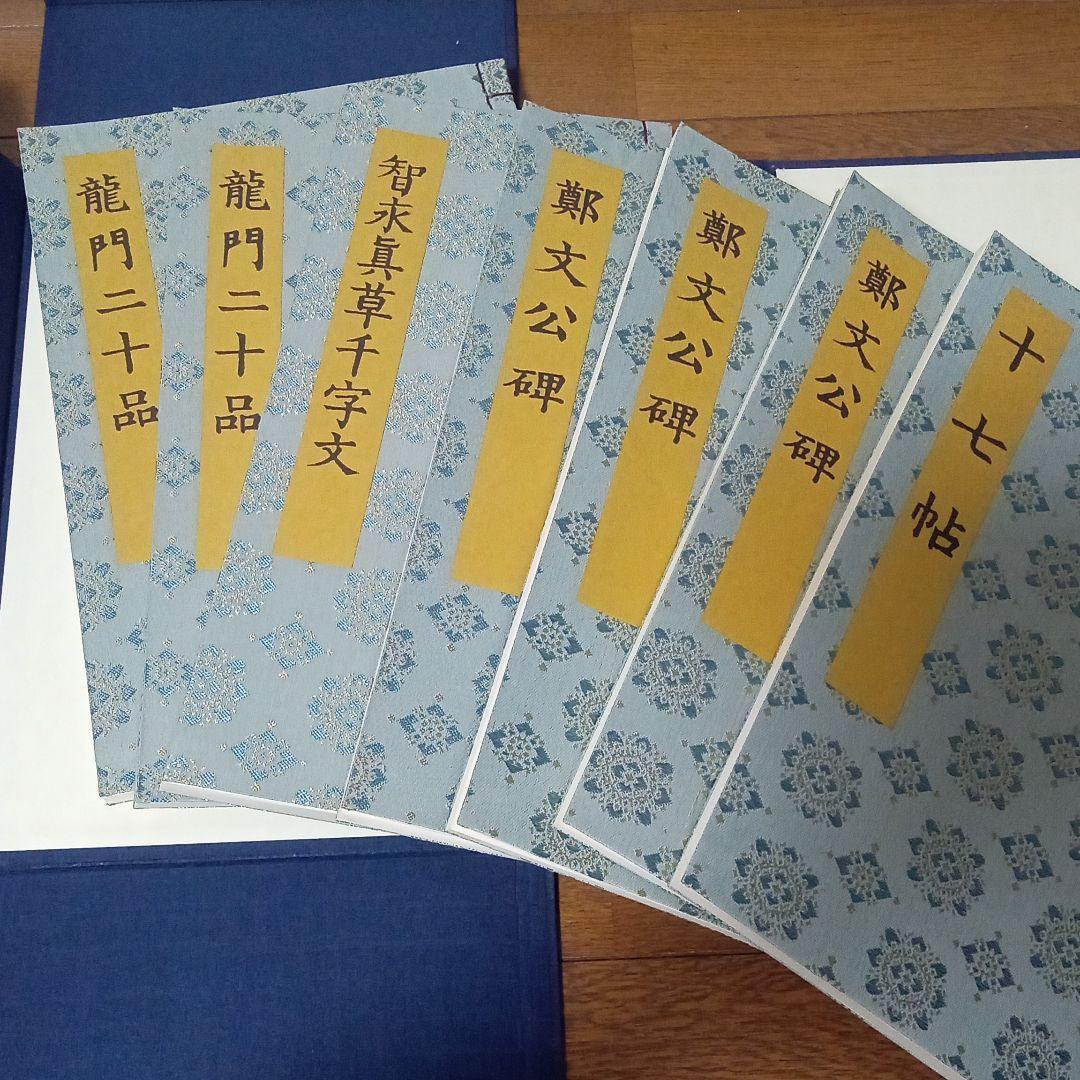 龍門二十品
龍門二十品
智永眞草千字文
鄭文公碑
鄭文公碑
鄭文公碑
十七帖